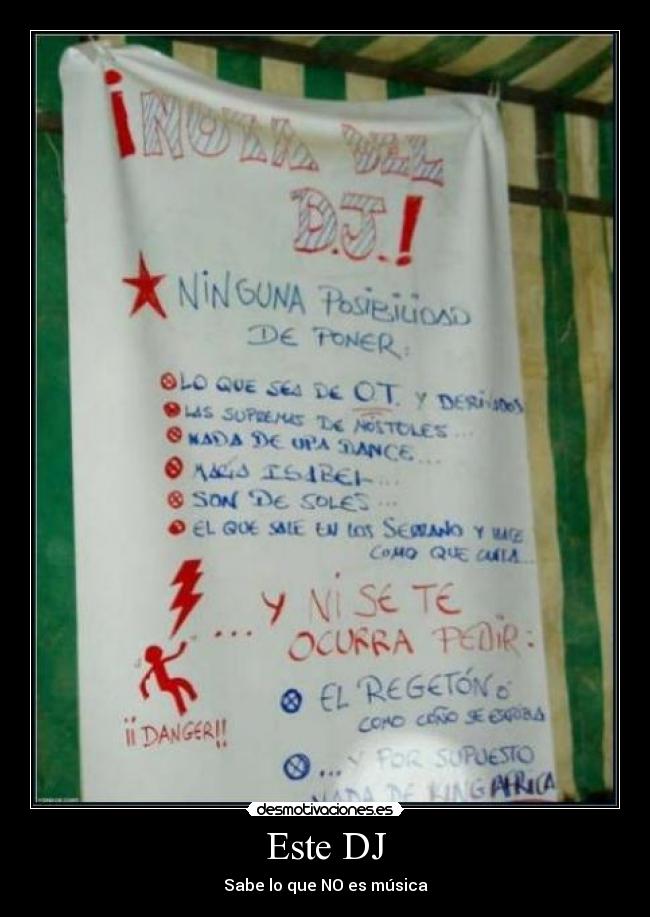 ¡NOTA DEL
D.J.!
NINGUNA POSIBILIDAD
DE PONER:
LO QUE SEA DE O.T. Y DERIVADOS
LAS SUPREMAS DE MÓSTOLES...
NADA DE UPA DANCE...
MARÍA ISABEL...
SON DE SOLES...
EL QUE SALE EN LOS SERRANO Y HACE
COMO QUE CANTA...
...Y NI SE TE
OCURRA PEDIR:
EL REGETÓN Ó
COMO COÑO SE ESCRIBA
¡¡DANGER!!
...Y POR SUPUESTO
NADA DE KING AFRICA
desmotivaciones.es
Este DJ
Sabe lo que NO es música